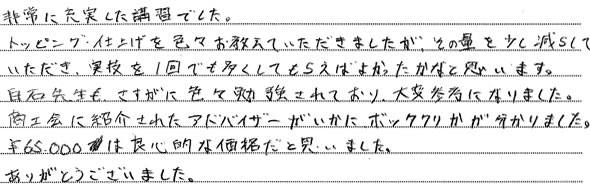 非常に充実した講習でした。
トッピング・仕上げを色々お教えていただきましたが、その量を少し減らして
いただき、実技を1回でも多くしてもらえばよかったかなと思います。
白石先生も、さすがに色々勉強されており、大変参考になりました。
商工会に紹介されたアドバイザーがいかにボッタクリかが分かりました。
¥65.000は良心的な価格だと思いました。
ありがとうございました。